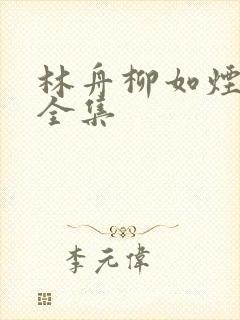 林舟柳如煙
全集
李元偉